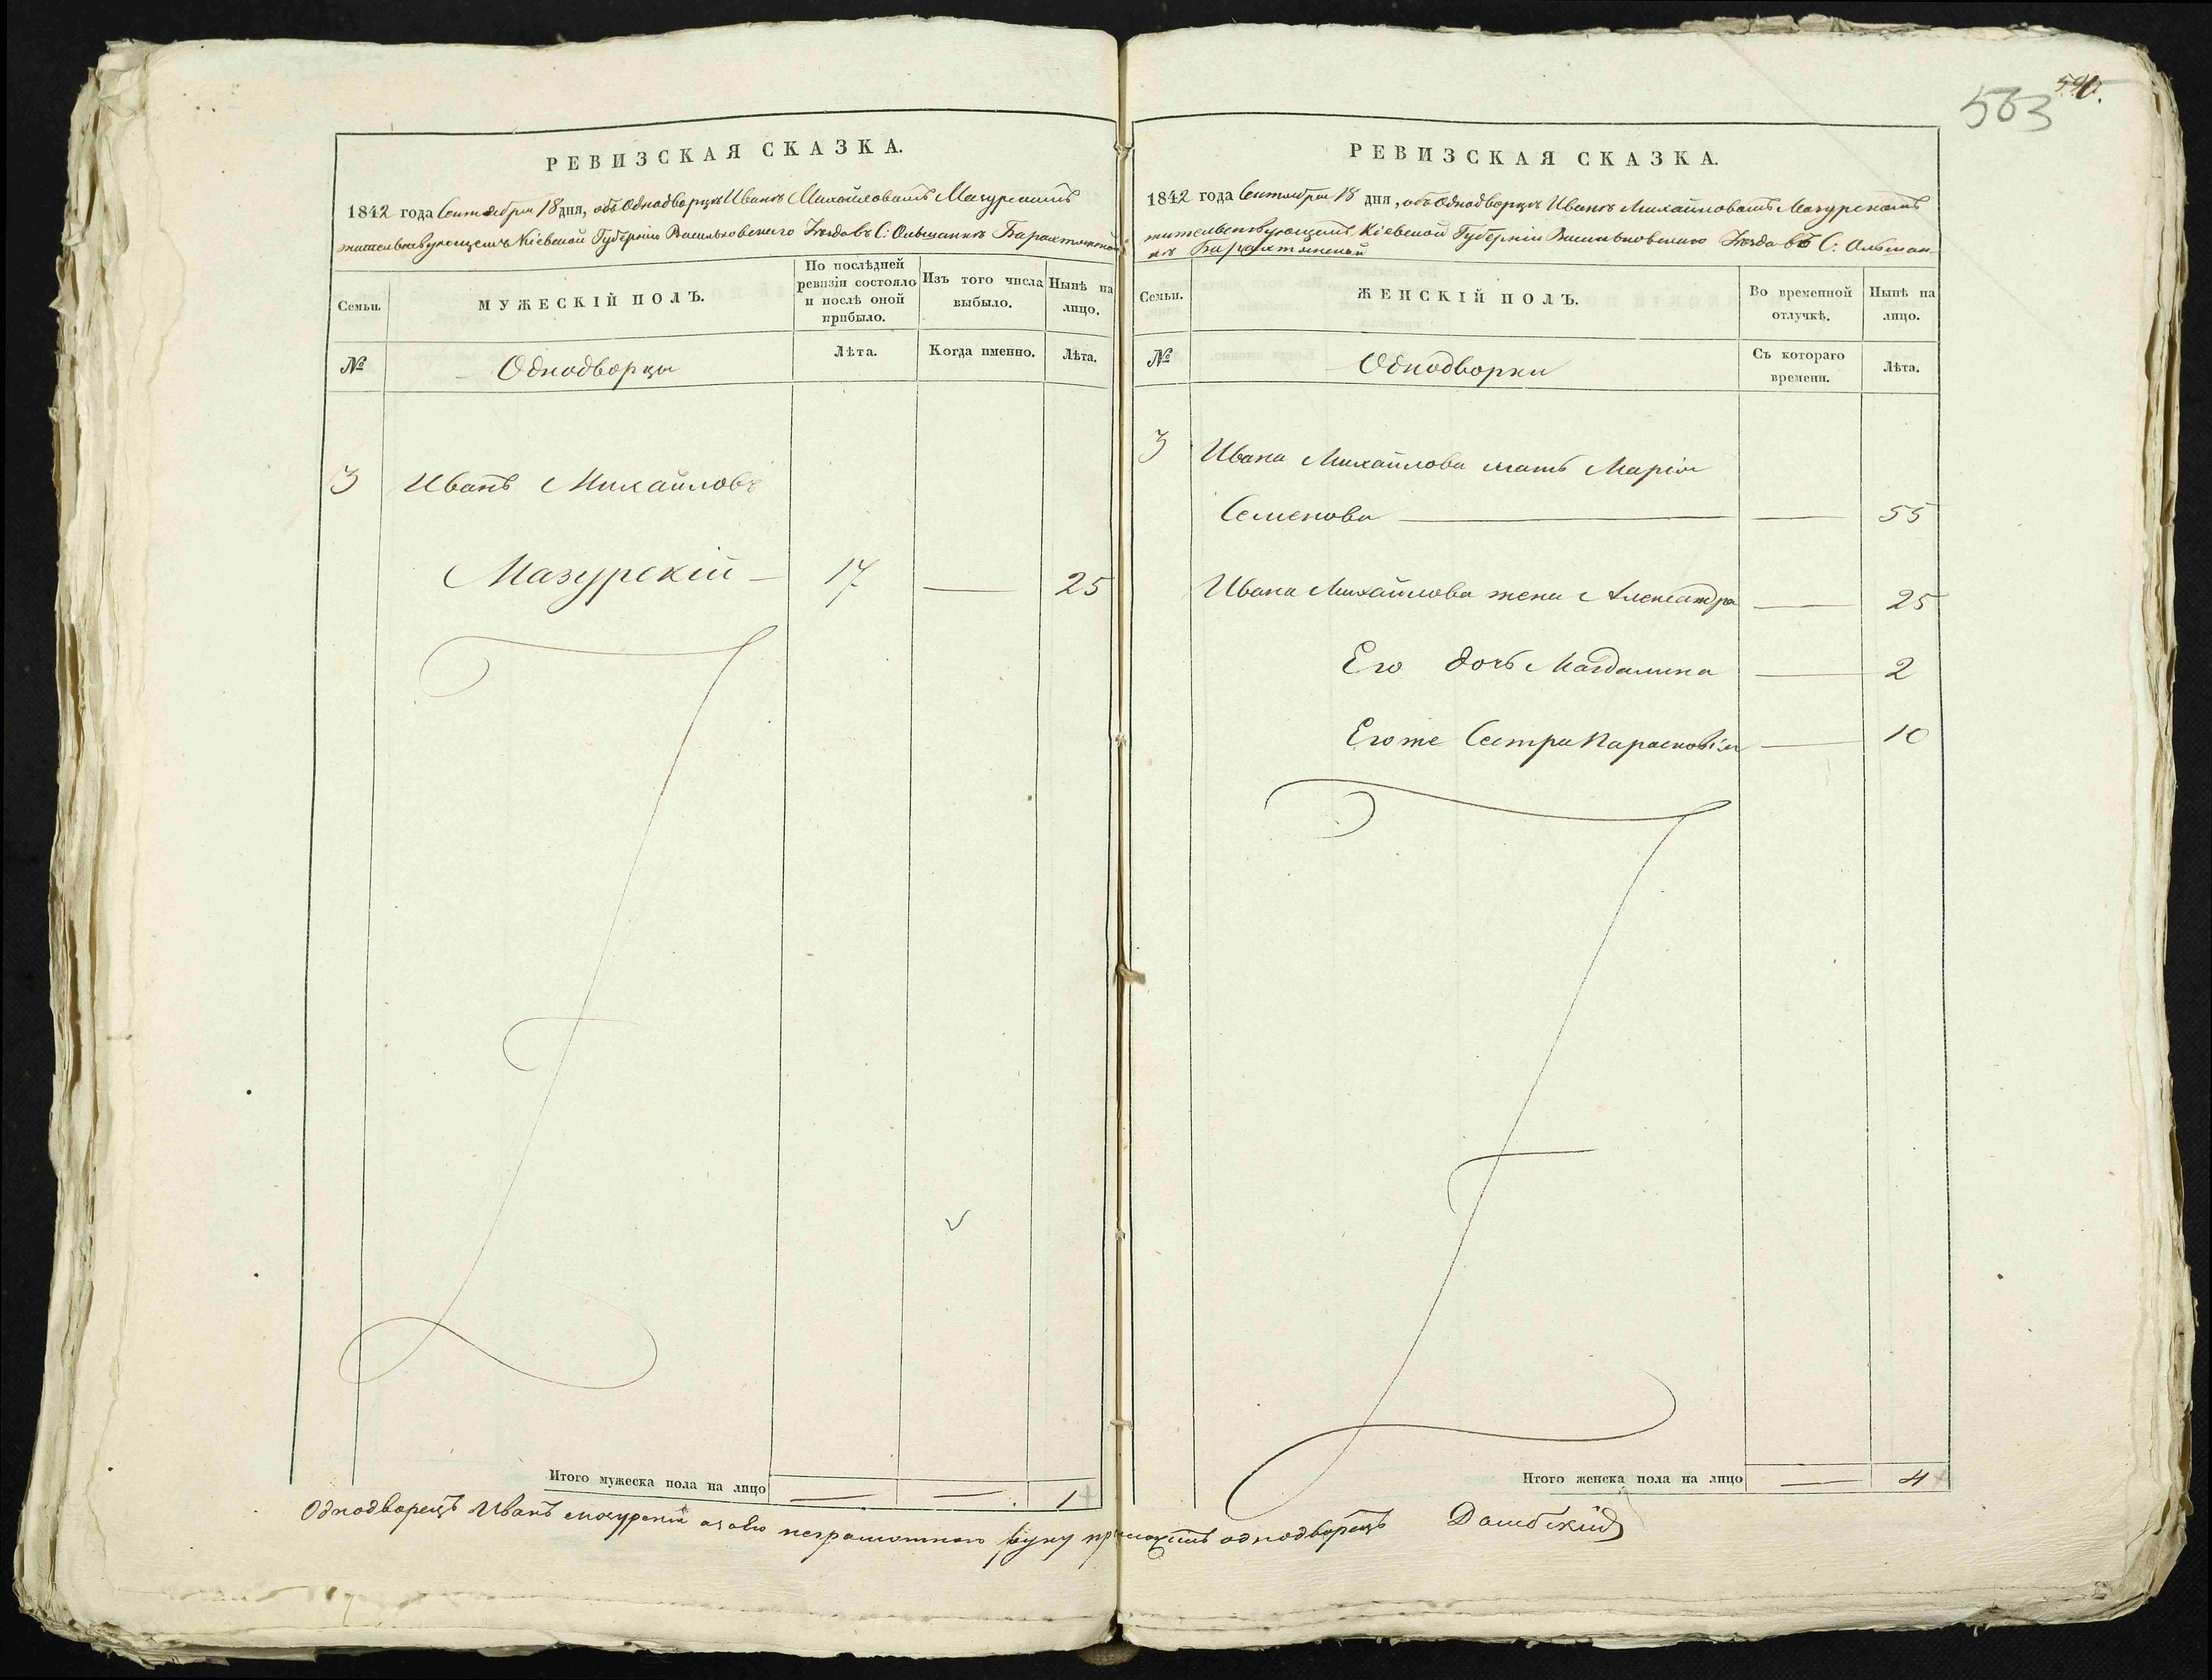 563
РЕВИЗСКАЯ СКАЗКА.
1842 года Сентября 18 дня, объ Однодворцѣ Иванѣ Михайловомъ Мазурскомъ
жительствующемъ Кіевской Губерніи Васильковскаго Уѣзда въ С: Ольшанкѣ Барахтянской
Семьи.
МУЖЕСКІЙ ПОЛЪ.
По послѣдней ревизіи состояло и послѣ оной прибыло.
Изъ того числа выбыло.
Нынѣ на лицо.
№
Однодворцы
Лѣта.
Когда именно.
Лѣта.
3 Иванъ Михайловъ
Мазурскій — 17 — 25
Итого мужеска пола на лицо — — 1
РЕВИЗСКАЯ СКАЗКА.
1842 года Сентября 18 дня, объ Однодворцѣ Иванѣ Михайловомъ Мазурскомъ
жительствующемъ Кіевской Губерніи Васильковскаго Уѣзда въ С: Ольшан-
кѣ Барахтянской
Семьи.
ЖЕНСКІЙ ПОЛЪ.
Во временной отлучкѣ.
Нынѣ на лицо.
№
Однодворки
Съ котораго времени.
Лѣта.
3 Ивана Михайлова мать Марія
Семенова — — 55
Ивана Михайлова жена Александра — 25
Его дочь Магдалина — 2
Его же Сестра Парасковія — 10
Итого женска пола на лицо — 4
Однодворецъ Иванъ Мазурскій а за его неграмотного руку приложилъ однодворецъ